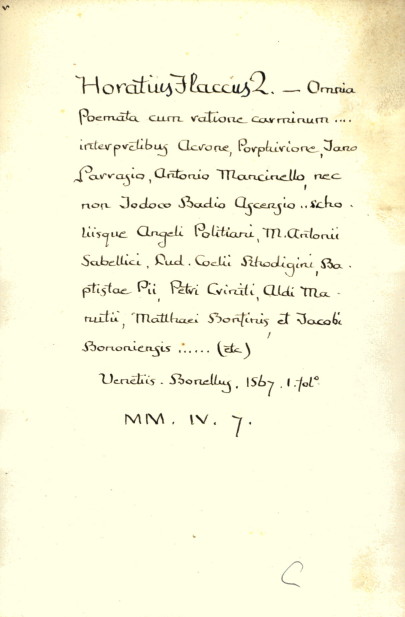 Horatius Flaccus Q. — Omnia
Poemata cum ratione carminum ....
interpretibus Acrone, Porphirione, Jano
Parrasio, Antonio Mancinello, nec
non Jodoco Badio Ascensio .. scho-
liisque Angeli Politiani, M. Antonii
Sabellici, Lud. Coelii Rhodigini, Ba-
ptistae Pii, Petri Criniti, Aldi Ma-
nutii, Matthaei Bonfinis, et Jacobi
Bononiensis ...... (etc)
Venetiis. Bonellus, 1567. 1. fol°
MM. IV. 7.
C